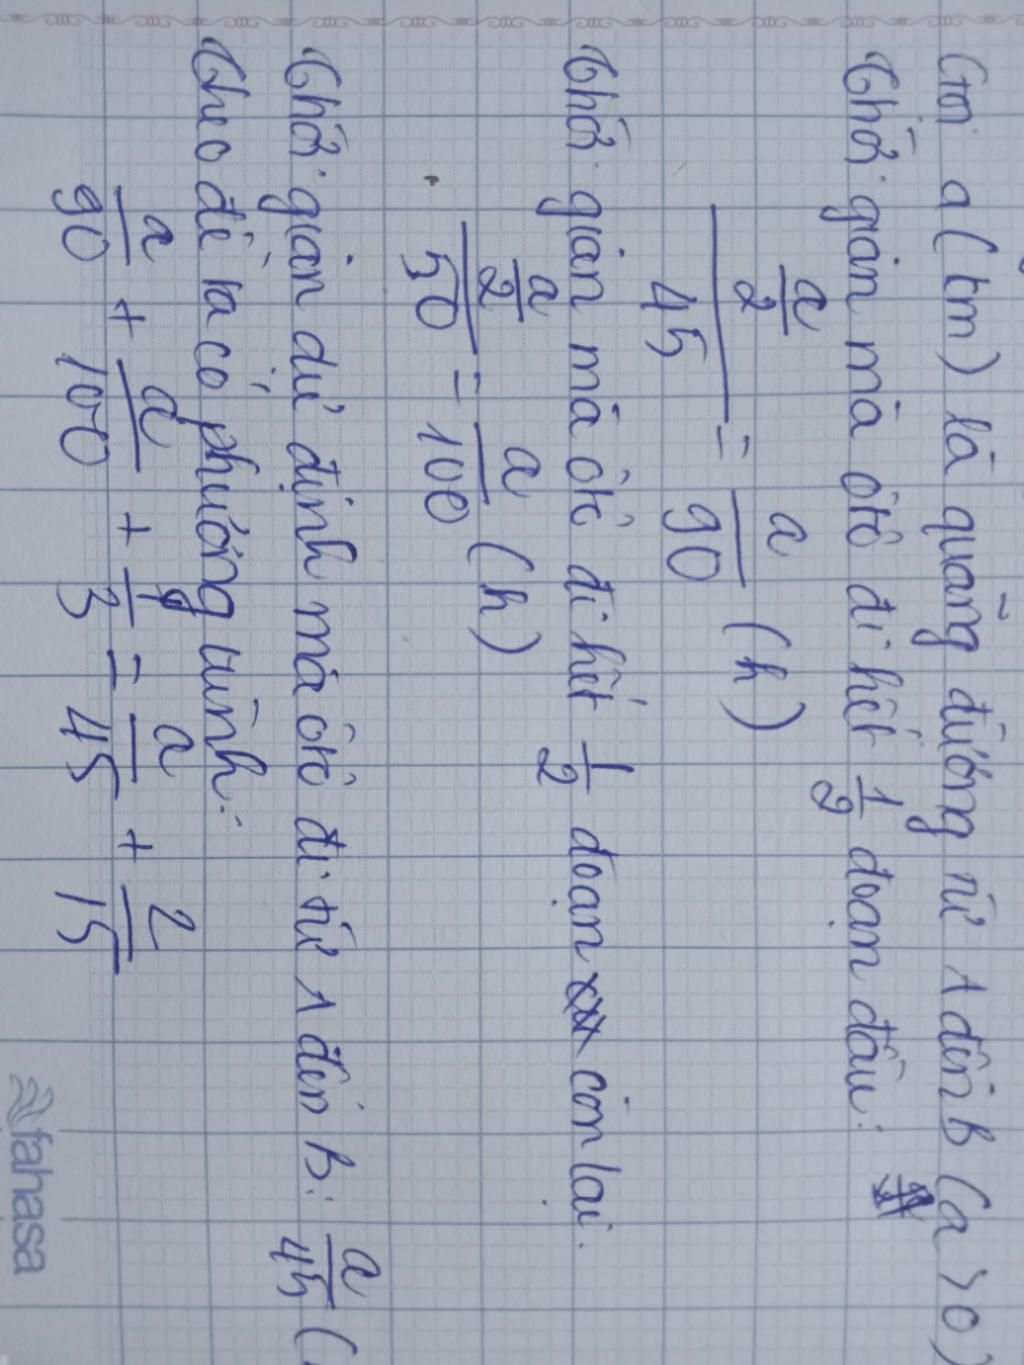 Gọi a (km) là quãng đường từ A đến B (a > 0)
Thời gian mà ôtô đi hết 1/2 đoạn đầu:
(a/2)/45 = a/90 (h)
Thời gian mà ôtô đi hết 1/2 đoạn còn lại.
(a/2)/50 = a/100 (h)
Thời gian dự định mà ôtô đi từ A đến B: a/45 (
Theo đề ta có phương trình:
a/90 + a/100 + 1/3 = a/45 + 2/15
fahasa